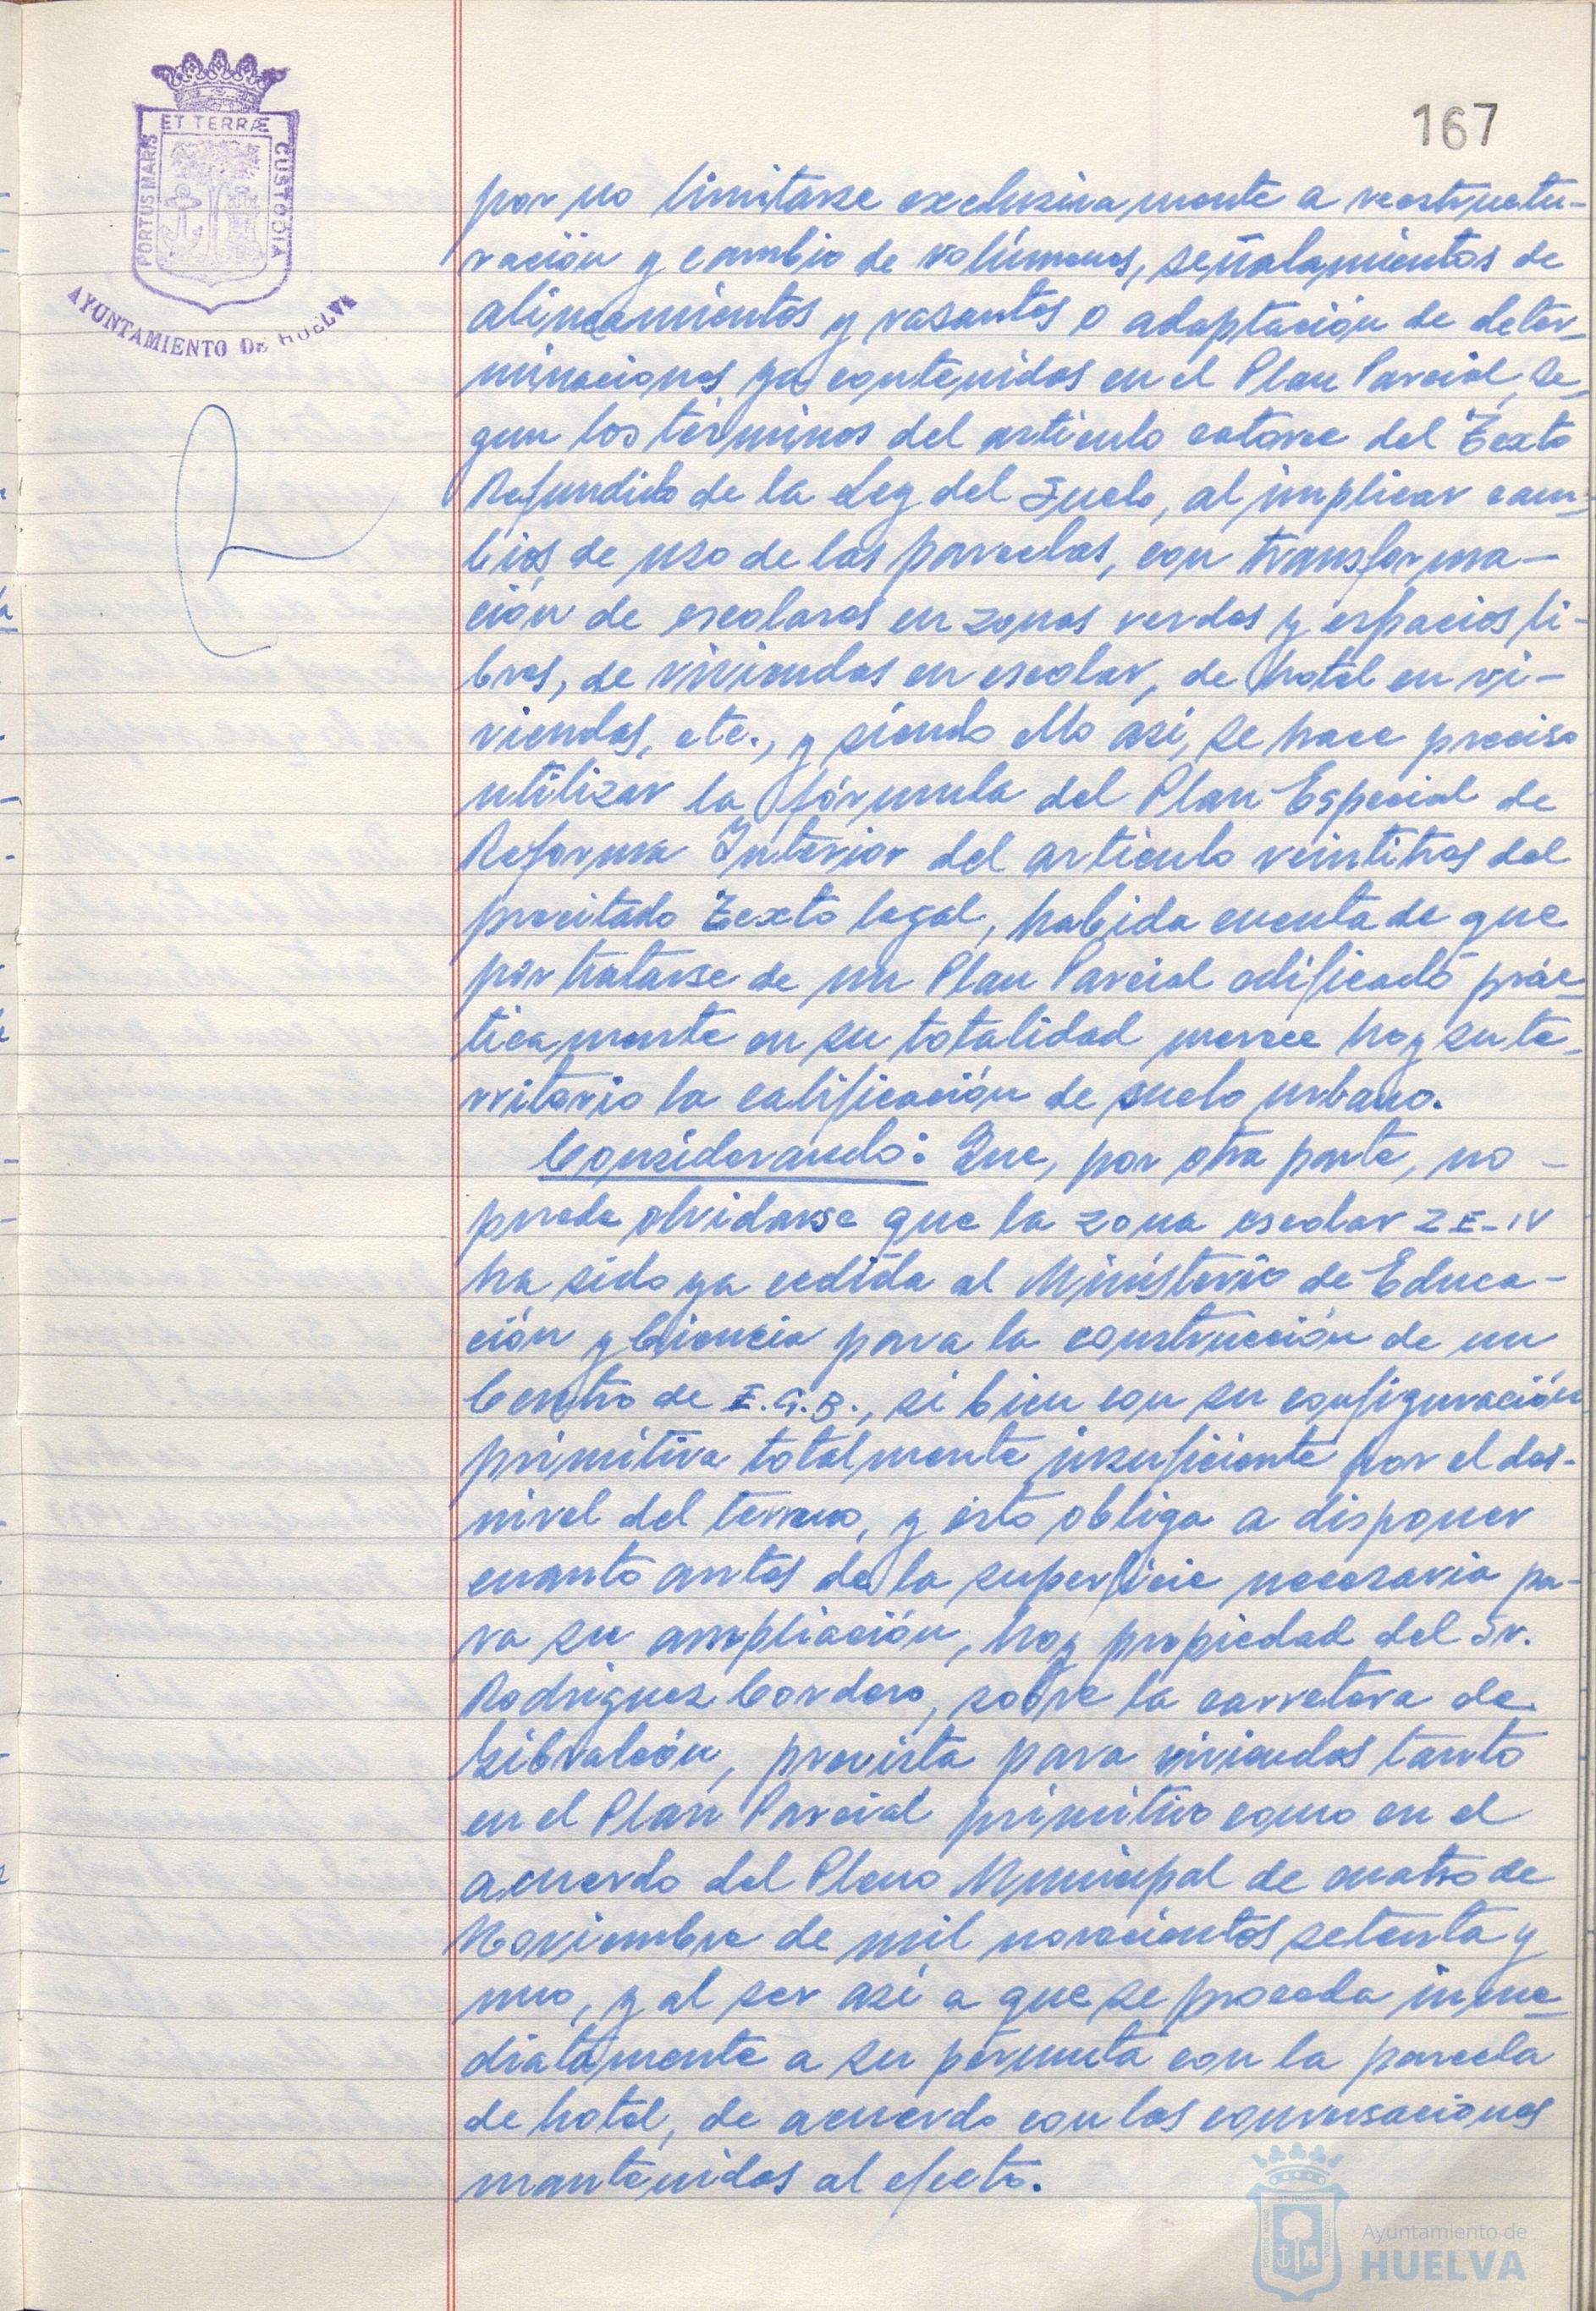 ET TERRÆ
PORTUS MARIS
CUSTODIA
AYUNTAMIENTO DE HUELVA
167
por no limitarse exclusivamente a reestructu-
ración y cambio de volúmenes, señalamientos de
alineamientos y rasantes o adaptación de deter-
minaciones ya contenidas en el Plan Parcial, se-
gun los términos del artículo catorce del Texto
Refundido de la Ley del Suelo, al implicar cam-
bios de uso de las parcelas, con transforma-
ción de escolares en zonas verdes y espacios li-
bres, de viviendas en escolar, de hotel en vi-
viendas, etc., y siendo ello así, se hace preciso
utilizar la fórmula del Plan Especial de
Reforma Interior del artículo veintitres del
precitado Texto legal, habida cuenta de que
por tratarse de un Plan Parcial edificado prác-
ticamente en su totalidad merece hoy su te-
rritorio la calificación de suelo urbano.
Considerando: Que, por otra parte, no
puede olvidarse que la zona escolar ZE-IV
ha sido ya cedida al Ministerio de Educa-
ción y Ciencia para la construcción de un
Centro de E.G.B., si bien con su configuración
primitiva totalmente insuficiente por el des-
nivel del terreno, y esto obliga a disponer
cuanto antes de la superficie necesaria pa-
ra su ampliación, hoy propiedad del Sr.
Rodriguez Cordero, sobre la carretera de
Gibraleón, prevista para viviendas tanto
en el Plan Parcial primitivo como en el
acuerdo del Pleno Municipal de cuatro de
Noviembre de mil novecientos setenta y
uno, y al ser así a que se proceda inme-
diatamente a su permuta con la parcela
de hotel, de acuerdo con las conversaciones
mantenidas al efecto.
Ayuntamiento de
HUELVA